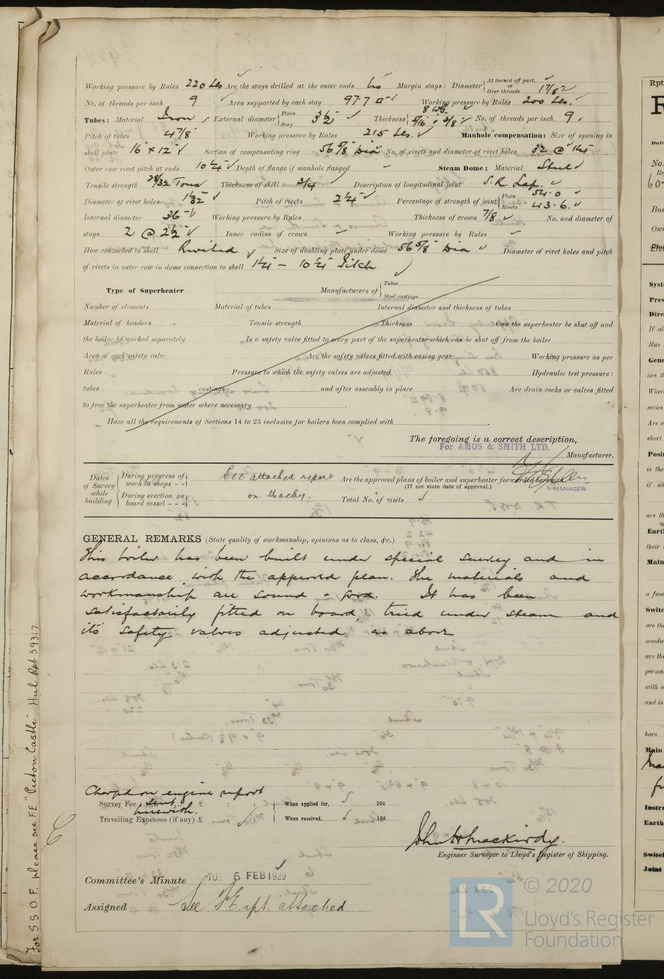 Working pressure by Rules 220 Lbs Are the stays drilled at the outer ends No Margin stays: Diameter { At turned off part, or Over threads 1 7/8"
No. of threads per inch 9 Area supported by each stay 97.7 □" Working pressure by Rules 200 Lbs.
Tubes: Material Iron External diameter { Plain Stay 3½" Thickness { 8 WG. 5/16" & 3/8" No. of threads per inch 9
Pitch of tubes 4 7/8" Working pressure by Rules 215 Lbs. Manhole compensation: Size of opening in
shell plate 16" x 12" Section of compensating ring 56 5/8" Dia No. of rivets and diameter of rivet holes 32 @ 1¼
Outer row rivet pitch at ends 10¼" Depth of flange if manhole flanged Steam Dome: Material Steel
Tensile strength 28/32 Tons Thickness of shell 3/4" Description of longitudinal joint S.R. Lap.
Diameter of rivet holes 1 1/32" Pitch of rivets 2¼" Percentage of strength of joint { Plate 54.0 Rivets 43.6.
Internal diameter 36" Working pressure by Rules Thickness of crown 7/8" No. and diameter of
stays 2 @ 2½" Inner radius of crown Working pressure by Rules
How connected to shell Rivited Size of doubling plate under dome 56 5/8" Dia Diameter of rivet holes and pitch
of rivets in outer row in dome connection to shell 1¼" – 10¼" Pitch
Type of Superheater Manufacturers of { Tubes Steel castings
Number of elements Material of tubes Internal diameter and thickness of tubes
Material of headers Tensile strength Thickness Can the superheater be shut off and
the boiler be worked separately Is a safety valve fitted to every part of the superheater which can be shut off from the boiler
Area of each safety valve Are the safety valves fitted with easing gear Working pressure as per
Rules Pressure to which the safety valves are adjusted Hydraulic test pressure:
tubes castings and after assembly in place Are drain cocks or valves fitted
to free the superheater from water where necessary
Have all the requirements of Sections 14 to 23 inclusive for boilers been complied with
The foregoing is a correct description,
For AMOS & SMITH LTD. Manufacturer.
MANAGER
Dates of Survey while building { During progress of work in shops - - } See attached report Are the approved plans of boiler and superheater forwarded herewith
(If not state date of approval.)
{ During erection on board vessel - - - } on Machy. Total No. of visits
GENERAL REMARKS (State quality of workmanship, opinions as to class, &c.)
This boiler has been built under special survey and in
accordance with the approved plan. The materials and
workmanship are sound & good. It has been
satisfactorily fitted on board, tried under steam and
its safety valves adjusted as above
Charged on engine report
Survey Fee ... £ When applied for, 192
herewith.
Travelling Expenses (if any) £ When received, 192
John H Mackirdy.
Engineer Surveyor to Lloyd's Register of Shipping.
Committee's Minute TUE 5 FEB 1929
Assigned See F.E. rpt. attached
For S.S.O.F. please see F.E. "Picton Castle" Hul Rpt 39317
© 2020
LR Lloyd's Register
Foundation